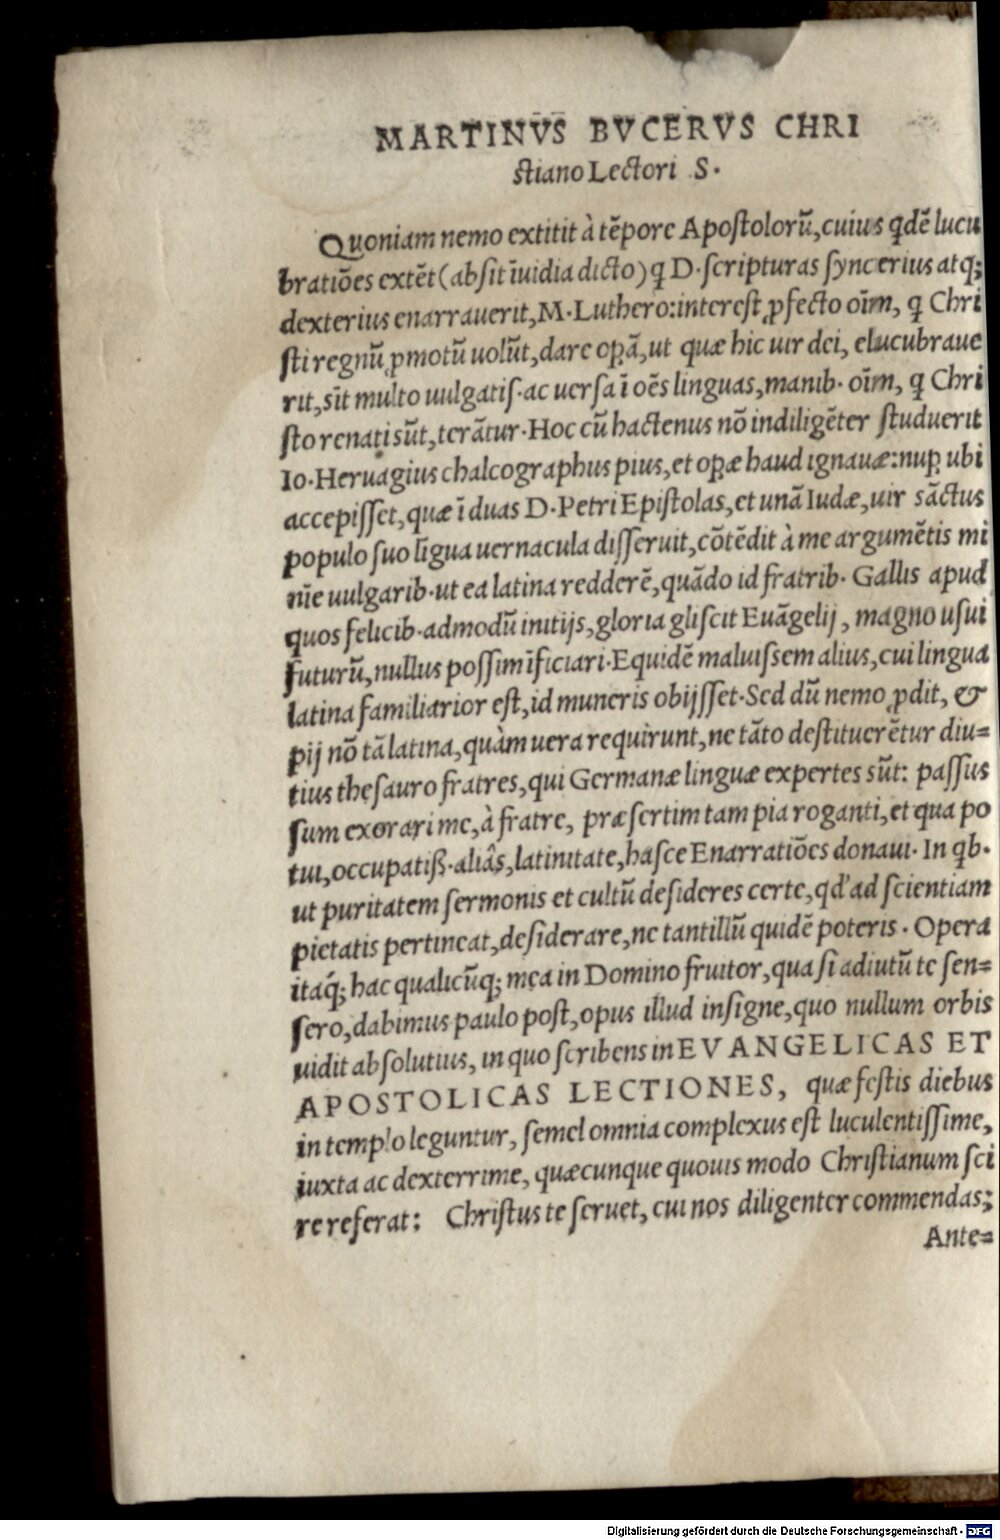 MARTINVS BVCERVS CHRI
stiano Lectori S.
Quoniam nemo extitit à tẽpore Apostolorũ, cuius qdẽ lucu
bratiões extẽt (absit ĩuidia dicto) q D. scripturas syncerius atq;
dexterius enarrauerit, M. Luthero: interest ꝓfecto oĩm, q Chri
sti regnũ ꝓmotũ uolũt, dare oꝑã, ut quæ hic uir dei, elucubraue
rit, sĩt multo uulgatiſ. ac uersa ĩ oẽs linguas, manib. oĩm, q Chri
sto renati sũt, terãtur. Hoc cũ hactenus nõ indiligẽter studuerit
Io. Heruagius chalcographus pius, et oꝑæ haud ignauæ: nuꝑ ubi
accepisset, quæ ĩ duas D. Petri Epistolas, et unã Iudæ, uir sãctus
populo suo lĩgua uernacula disseruit, cõtẽdit à me argumẽtis mi
nĩe uulgarib. ut ea latina redderẽ, quãdo id fratrib. Gallis apud
quos felicib. admodũ initijs, gloria gliscit Euãgelij, magno usui
futurũ, nullus possim ĩficiari. Equidẽ maluissem alius, cui lingua
latina familiarior est, id muneris obijsset. Sed dũ nemo ꝓdit, &
pij nõ tã latina, quàm uera requirunt, ne tãto destituerẽtur diu=
tius thesauro fratres, qui Germanæ linguæ expertes sũt: passus
sum exorari me, à fratre, præsertim tam pia roganti, et qua po
tui, occupatiß. aliâs, latinitate, hasce Enarratiões donaui. In qb.
ut puritatem sermonis et cultũ desideres certe, qd' ad scientiam
pietatis pertineat, desiderare, ne tantillũ quidẽ poteris. Opera
itáq; hac qualicũq; mea in Domino fruitor, qua si adiutũ te sen=
sero, dabimus paulo post, opus illud insigne, quo nullum orbis
uidit absolutius, in quo scribens in EVANGELICAS ET
APOSTOLICAS LECTIONES, quæ festis diebus
in templo leguntur, semel omnia complexus est luculentissime,
iuxta ac dexterrime, quæcunque quouis modo Christianum sci
re referat: Christus te seruet, cui nos diligenter commendas;
Ante=
Digitalisierung gefördert durch die Deutsche Forschungsgemeinschaft - DFG